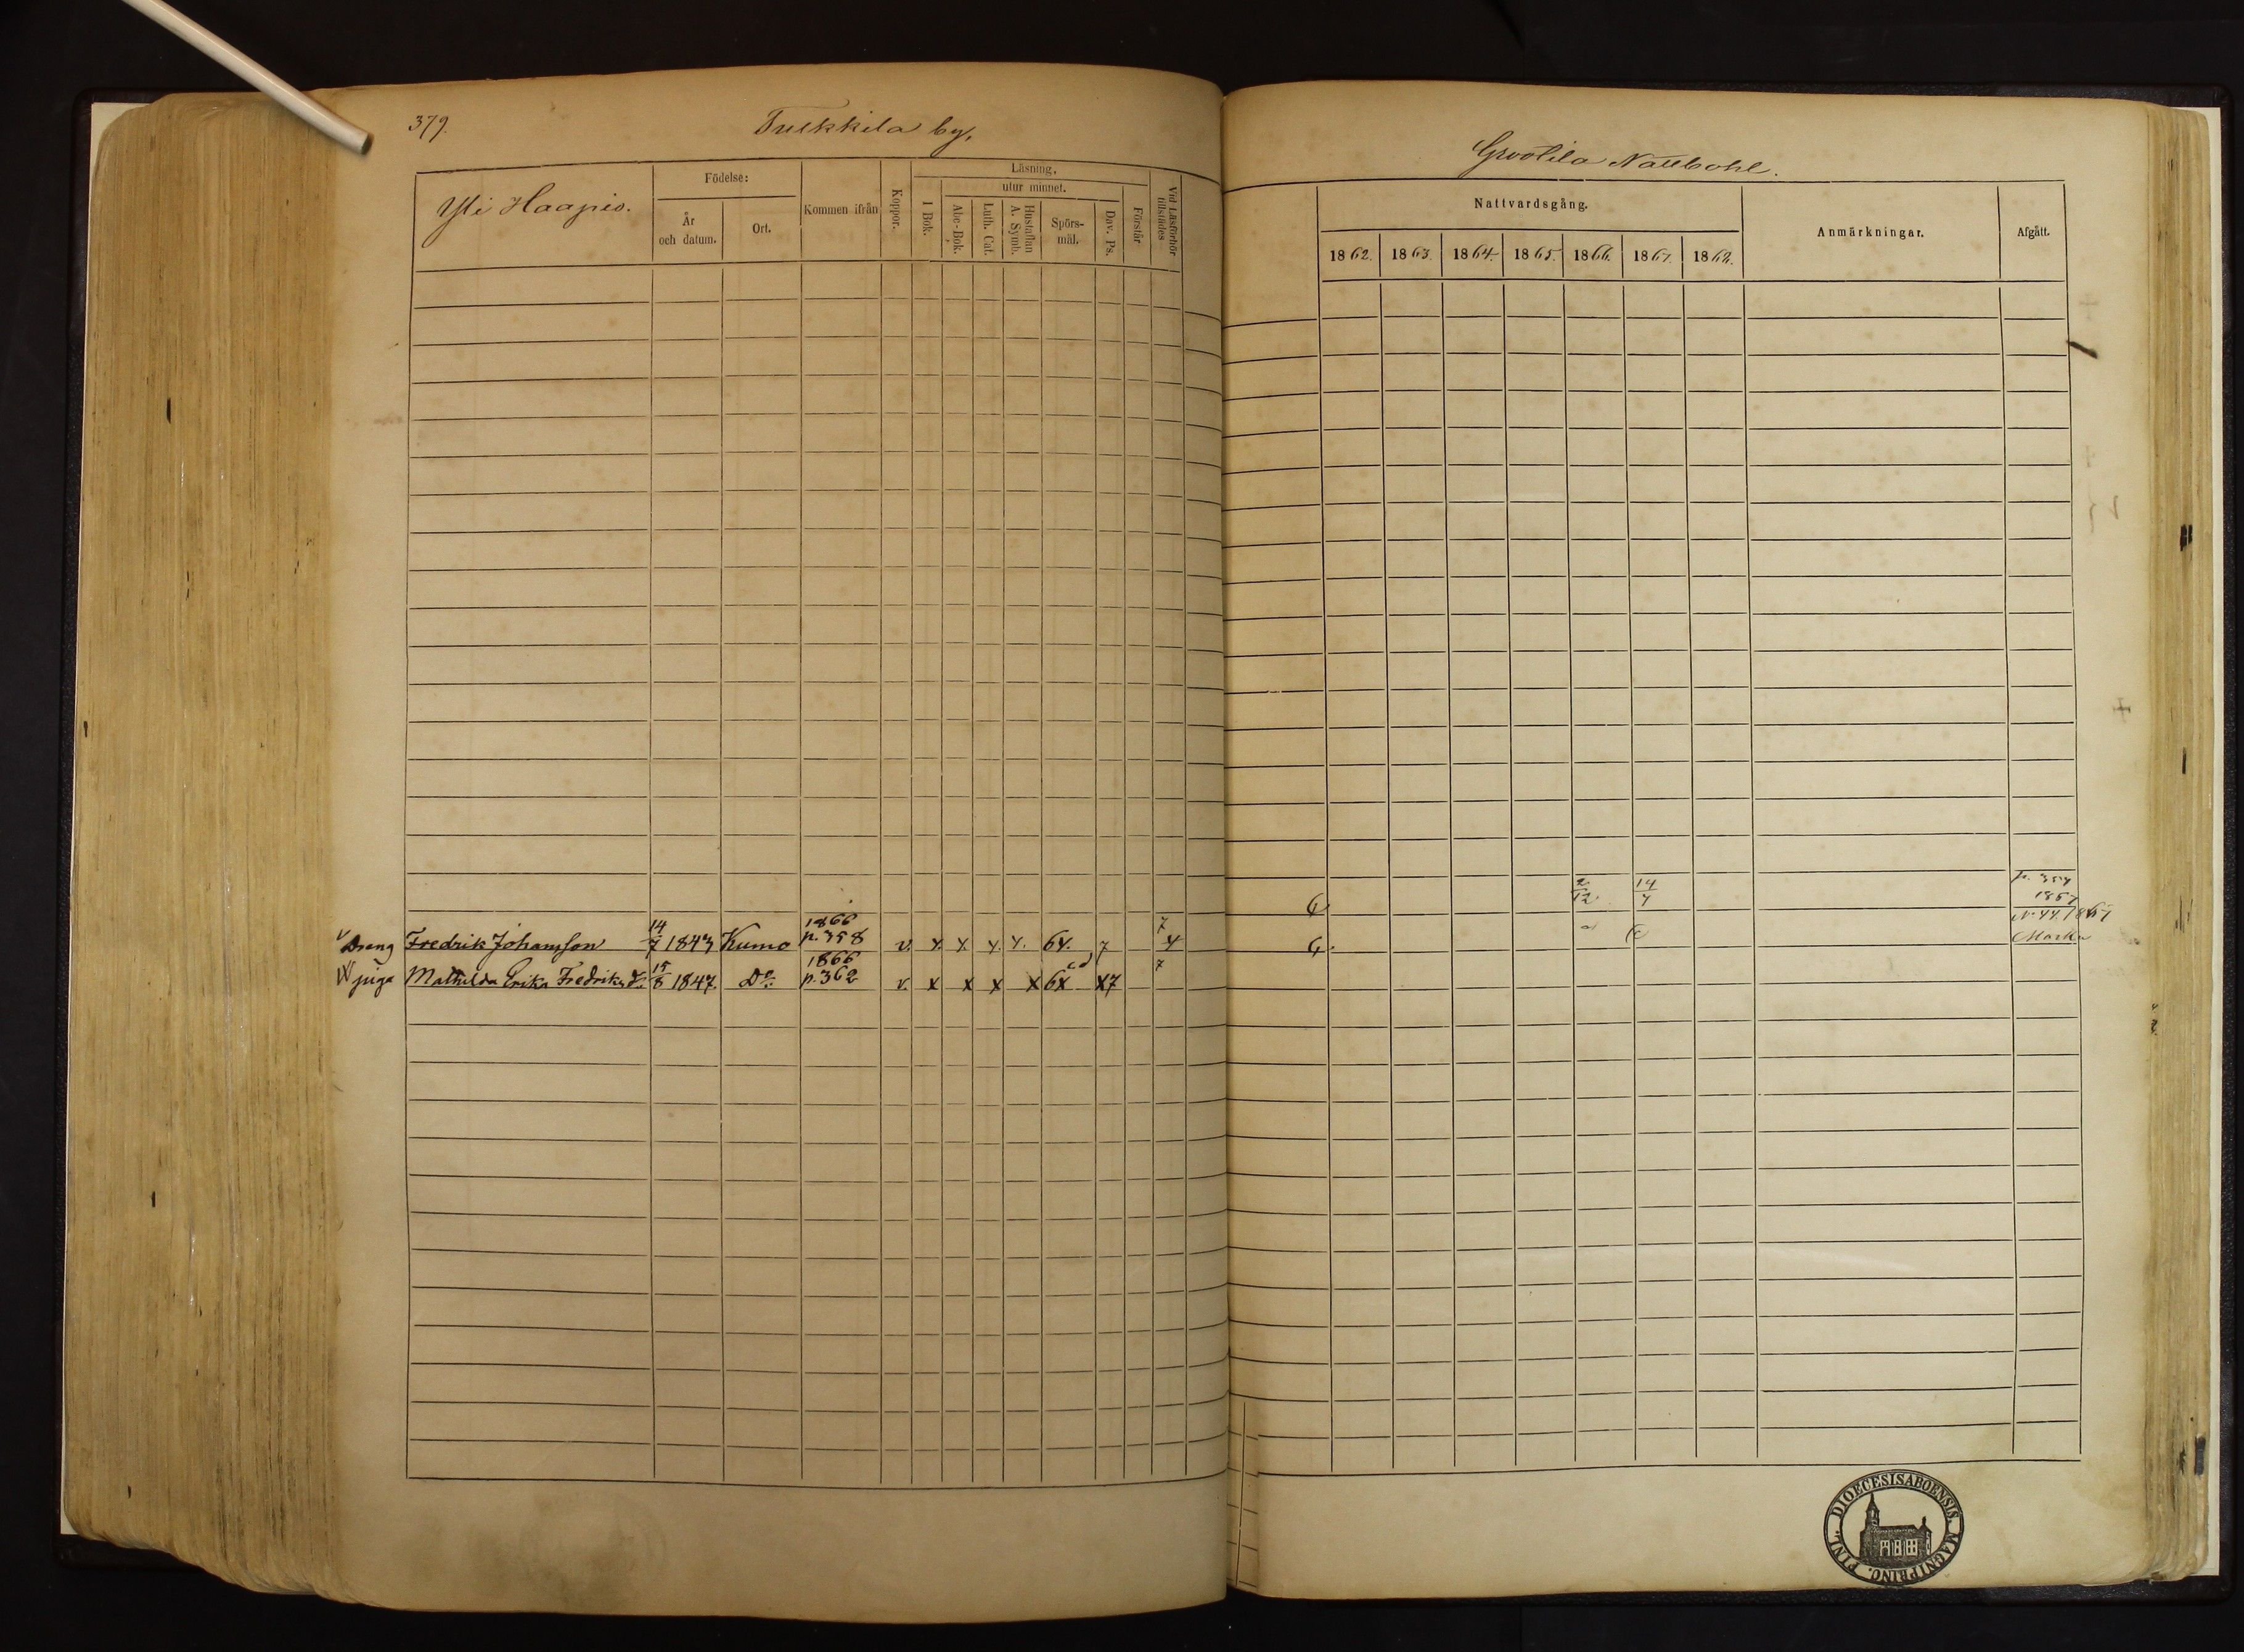 379.
Tulkkila by.
Yli Haapio.
Födelse:
År och datum.
Ort.
Kommen ifrån
Koppor.
Läsning,
I Bok.
utur minnet.
Abc-Bok.
Luth. Cat.
Hustaflan A. Symb.
Spörs-mål.
Dav. Ps.
Förstår
Vid Läsförhör tillstädes
v Dräng Fredrik Johansson 14/7 1843 Kumo 1866 p. 358 v. x x x. x. 6x. 7 7 4
piga Mathilda Erika Fredriksdr. 15/8 1847. Do: 1866 p. 362 v. x x x x 6x x7 7
Grootila Rättbohl.
Nattvardsgång.
Anmärkningar.
Afgått.
1862. 1863. 1864. 1865. 1866. 1867. 1868.
2/12 14/7 p. 354 1867
No 44. 1867
FINL. DIOECESIS ABOENSIS. MAGNI PRINC.